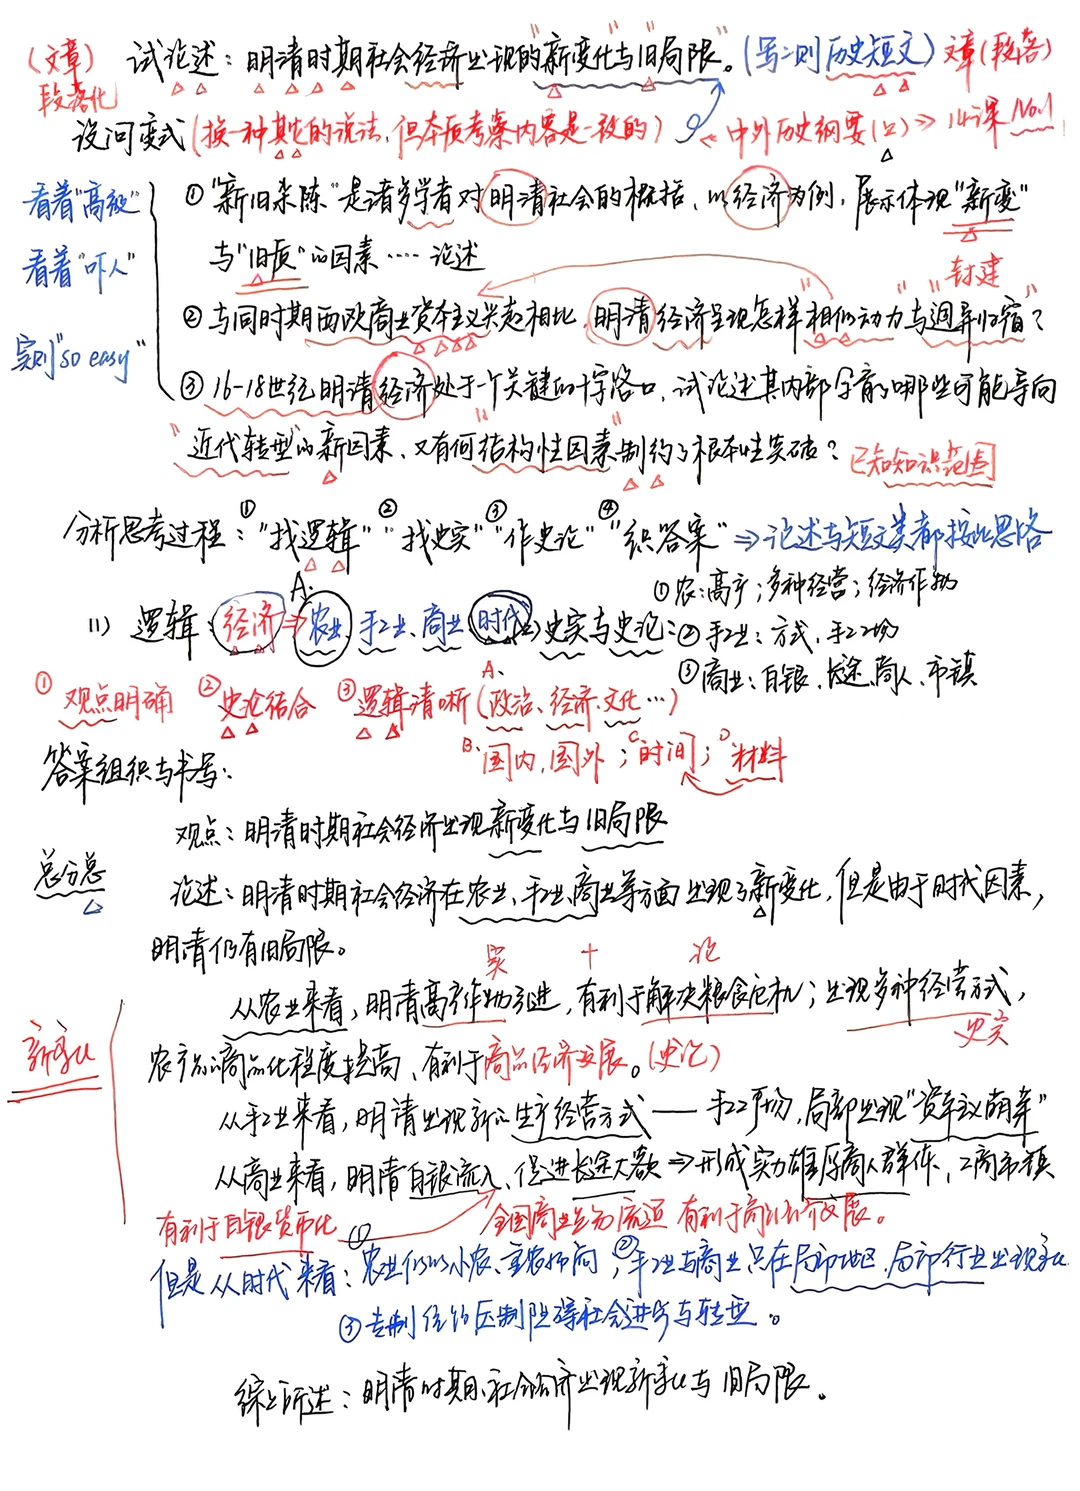 (文章) 试论述：明清时期社会经济出现的"新变化"与"旧局限"。(写一则历史短文) 文章(段落)
段落化
设问变式(换一种其它的说法，但本质考察内容是一致的) ← 中外历史纲要(上) ⇒ 14课 No.1
看着"高级"
①"新旧杂陈"是诸多学者对明清社会的概括，以经济为例，展示体现"新变"
看着"吓人"
与"旧质"的因素……论述
封建
②与同时期西欧商业资本主义兴起相比，明清经济呈现怎样"相似动力"与"迥异归宿"？
实则"so easy"
③16-18世纪明清经济处于一个关键的十字路口，试论述其内部孕育了哪些可能导向
"近代转型"的新因素，又有何"结构性因素"制约了根本性突破？ 已知知识范围
分析思考过程：①"找逻辑" ②"找史实" ③"作史论" ④"织答案" ⇒论述与短文类都按此思路
①农：高产；多种经营；经济作物
A.
(1) 逻辑：经济⇒农业、手工业、商业(时代)史实与史论：②手工业：方式、手工工场
③商业：白银、长途、商人、市镇
①观点明确 ②史论结合 ③逻辑清晰(A.政治、经济、文化…)
B.国内、国外；C时间；D材料
答案组织与书写：
观点：明清时期社会经济出现新变化与旧局限
总分总
论述：明清时期社会经济在农业、手工业、商业等方面出现了新变化，但是由于时代因素，
明清仍有旧局限。
实 + 论
从农业来看，明清高产作物引进，有利于解决粮食危机；出现多种经营方式，
史实
新变化
农产品商品化程度提高，有利于商品经济发展。(史论)
从手工业来看，明清出现新的生产经营方式——手工工场，局部出现"资本主义萌芽"
从商业来看，明清白银流入，促进长途大宗⇒形成实力雄厚商人群体，工商市镇
有利于白银货币化 全国商业贸易流通 有利于商品经济发展。
但是从时代来看：①农业仍以小农、重农抑商；②手工业与商业只在局部地区、局部行业出现变化
③专制统治压制阻碍社会进步与转型。
综上所述：明清时期，社会经济出现新变化与旧局限。